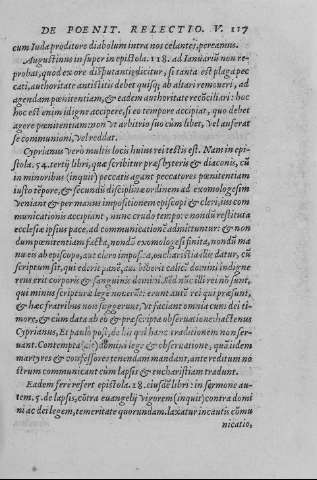 DE POENIT. RELECTIO. V. 117
cum Iuda proditore diabolum intra nos celantes, pereamus.
Augustinus in super in epistola. 118. ad Ianuariũ non re-
probas, quod ex ore disputantis dicitur, si tanta est plaga pec
cati, authoritate antistitis debet quisq; ab altari remoueri, ad
agendam pœnitentiam, & eadem authoritate recõciliari: hoc
hoc est enim idignè accipere, si eo tempore accipiat, quo debet
agere pœnitentiam: non vt arbitrio suo cũm libet, vel auferat
se communioni, vel reddat.
Cyprianus verò multis locis huius rei testis est. Nam in epi-
stola. 54. tertij libri, quæ scribitur præsbyteris & diaconis, cũ
in minoribus (inquit) peccatis agant peccatores pœnitentiam
iusto tẽpore, & secundũ disciplinæ ordinem ad exomologesim
veniant & per manus impositionem episcopi & cleri, ius com
municationis accipiant, nunc crudo tempore nondũ restituta
ecclesiæ ipsius pace, ad communicationẽ admittuntur: & non
dum pœnitentiam facta, nondũ exomologesi finita, nondũ ma
nu eis ab episcopo, aut clero imposita, eucharistia illis datur, cũ
scriptum sit, qui ederit panẽ, aut biberit calicẽ domini indignè
reus erit corporis & sanguinis domini. Sed nũc illi rei nõ sunt,
qui minus scripturæ legẽ norunt: erunt autẽ rei qui præsunt,
& hæc fratribus non suggerunt, vt faciant omnia cum dei ti-
more, & cũm data ab eo & præscripta obseruatione: hactenus
Cyprianus, Et paulo post, de his qui hanc traditionem non ser-
uant. Contempta (ait) domini lege & obseruatione, quã idem
martyres & confessores tenendam mandant, ante reditum no
strum communicant cũm lapsis & eucharistiam tradunt.
Eadem ferè refert epistola. 18. eiusdẽ libri: in sermone au-
tem. 5. de lapsis, cõtra euangelij vigorem (inquit) contra domi
ni ac dei legem, temeritate quorundam. laxatur incautis cõmu
nicatio,